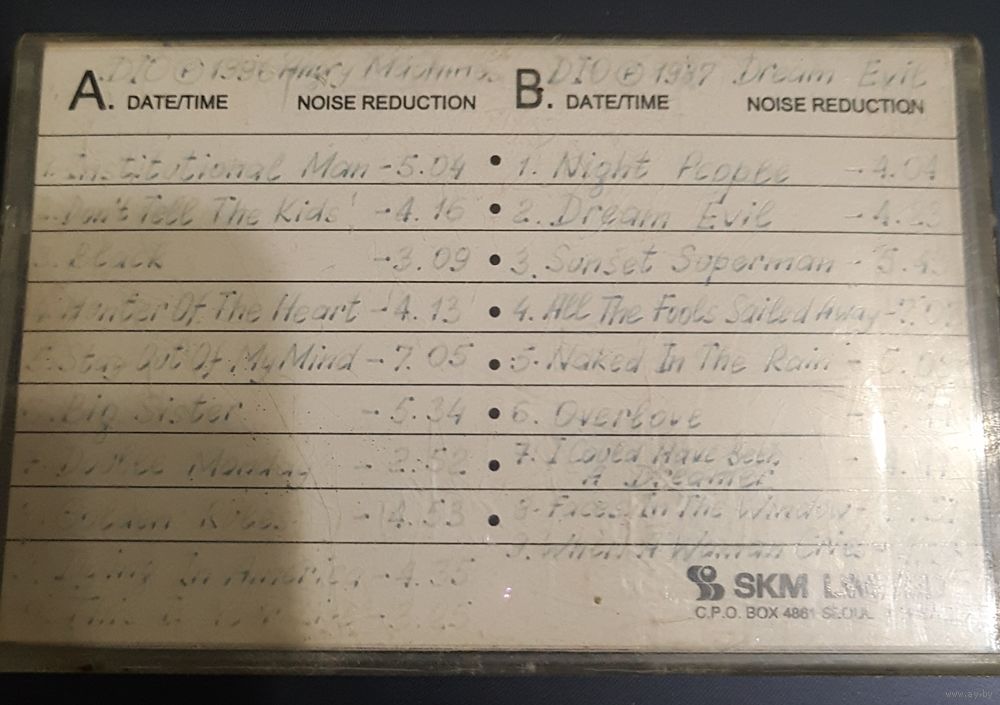 A. DIO ℗ 1996 Angry Machines
DATE/TIME NOISE REDUCTION
1. Institutional Man - 5.04
Don't Tell The Kids' - 4.16
3. Black - 3.09
Hunter Of The Heart - 4.13
5. Stay Out Of My Mind - 7.05
Big Sister - 5.34
Double Monday - 2.52
Golden Rules - 4.53
Dying In America - 4.35
This Is
B. DIO ℗ 1987 Dream Evil
DATE/TIME NOISE REDUCTION
1. Night People - 4.04
2. Dream Evil - 4.
3. Sunset Superman - 5.4
4. All The Fools Sailed Away - 7.0
5. Naked In The Rain - 5.0
6. Overlove -
7. I Could Have Been
A Dreamer
8. Faces In The Window -
9. When A Woman Cries
SKM LIMITED
C.P.O. BOX 4861 SEOUL
www.ay.by